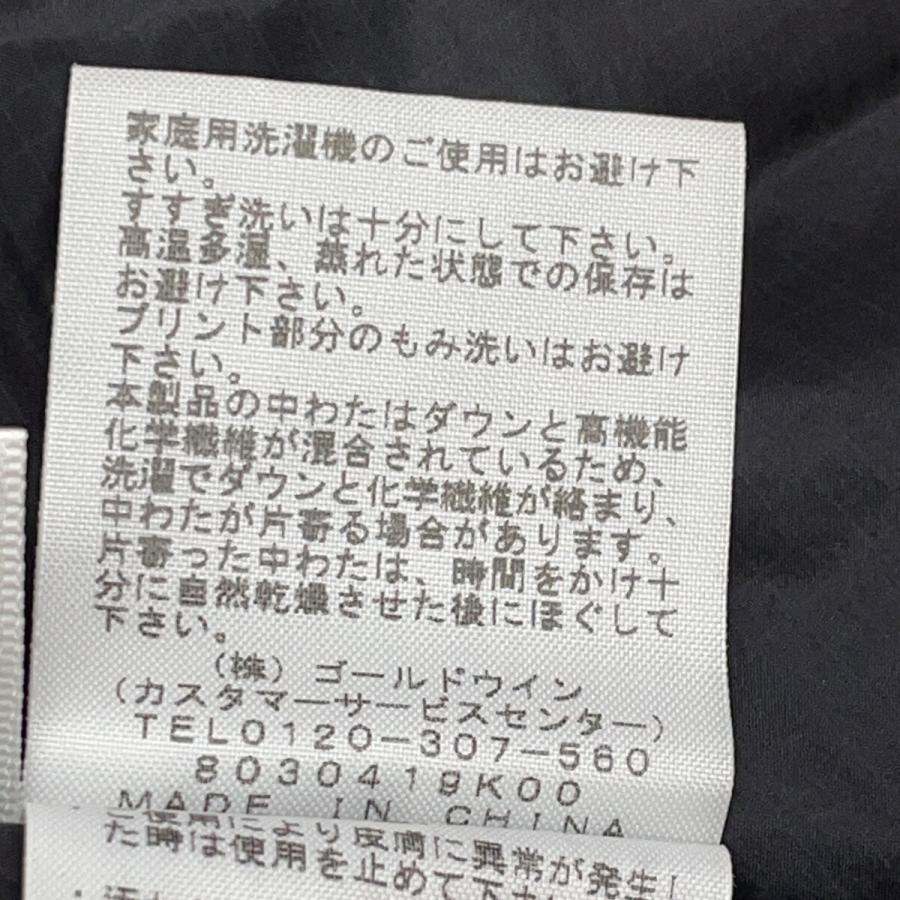 家庭用洗濯機のご使用はお避け下
さい。
すすぎ洗いは十分にして下さい。
高温多湿、蒸れた状態での保存は
お避け下さい。
プリント部分のもみ洗いはお避け
下さい。
本製品の中わたはダウンと高機能
化学繊維が混合されているため、
洗濯でダウンと化学繊維が絡まり、
中わたが片寄る場合があります。
片寄った中わたは、時間をかけ十
分に自然乾燥させた後にほぐして
下さい。
(株)ゴールドウイン
(カスタマーサービスセンター)
TEL0120-307-560
8030419K00
MADE IN CHINA
使用により皮膚に異常が発生し
た時は使用を止めて下さ